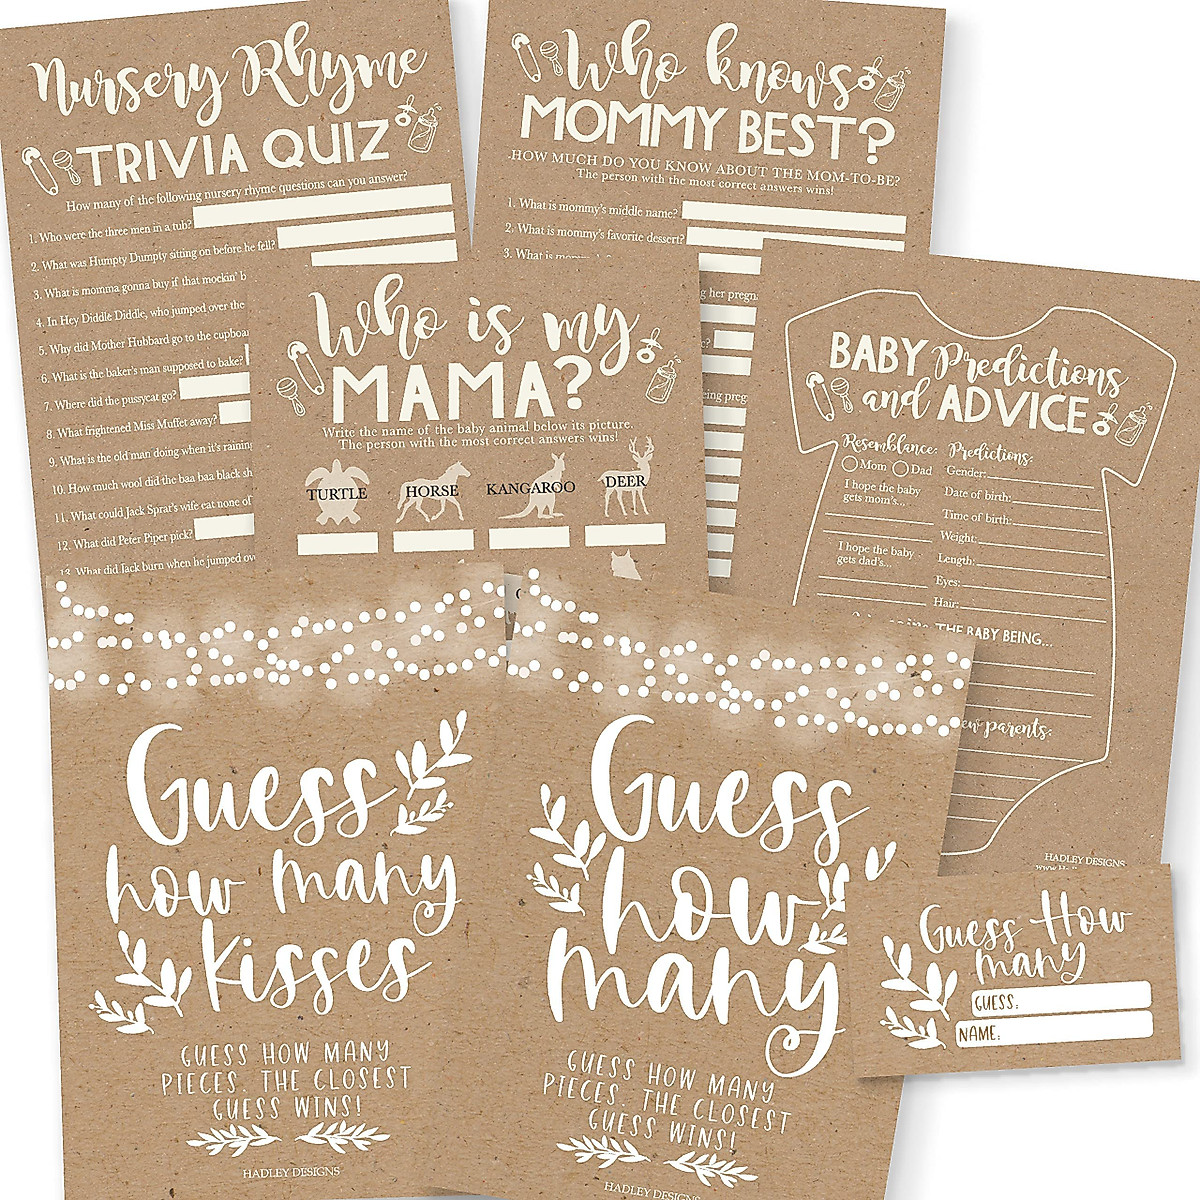 Nursery Rhyme
TRIVIA QUIZ
How many of the following nursery rhyme questions can you answer?
1. Who were the three men in a tub?
2. What was Humpty Dumpty sitting on before he fell?
3. What is momma gonna buy if that mockin' b
4. In Hey Diddle Diddle, who jumped over the
5. Why did Mother Hubbard go to the cupboa
6. What is the baker's man supposed to bake?
7. Where did the pussycat go?
8. What frightened Miss Muffet away?
9. What is the old man doing when it's raining
10. How much wool did the baa baa black sh
11. What could Jack Sprat's wife eat none of
12. What did Peter Piper pick?
13. What did Jack burn when he jumped ov
Who knows
MOMMY BEST?
HOW MUCH DO YOU KNOW ABOUT THE MOM-TO-BE?
The person with the most correct answers wins!
1. What is mommy's middle name?
2. What is mommy's favorite dessert?
3. What is
g her pregn
ing preg
Who is my
MAMA?
Write the name of the baby animal below its picture.
The person with the most correct answers wins!
TURTLE
HORSE
KANGAROO
DEER
BABY Predictions
and ADVICE
Resemblance:
Mom Dad
I hope the baby
gets mom's...
I hope the baby
gets dad's...
Predictions:
Gender:
Date of birth:
Time of birth:
Weight:
Length:
Eyes:
Hair:
THE BABY BEING...
ew parents:
HADLEY DESIGNS
Guess
how many
kisses
GUESS HOW MANY
PIECES. THE CLOSEST
GUESS WINS!
HADLEY DESIGNS
Guess
how
many
GUESS HOW MANY
PIECES. THE CLOSEST
GUESS WINS!
HADLEY DESIGNS
Guess How
many
GUESS:
NAME: